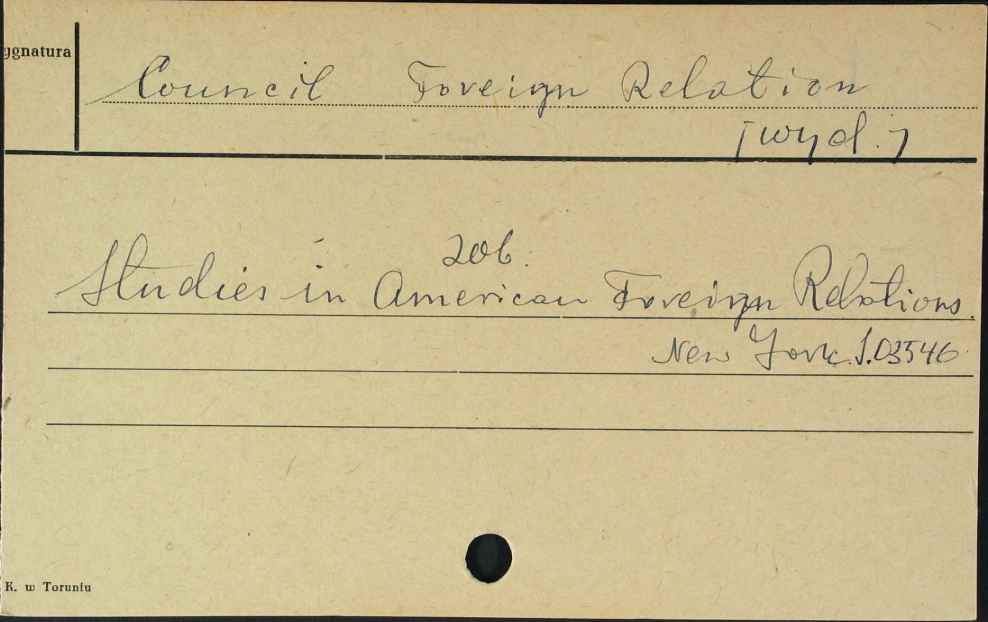 ygnatura
Council Foreign Relation
[wyd.]
zob.
Studies in American Foreign Relations.
New York. J.03546
K. w Toruniu